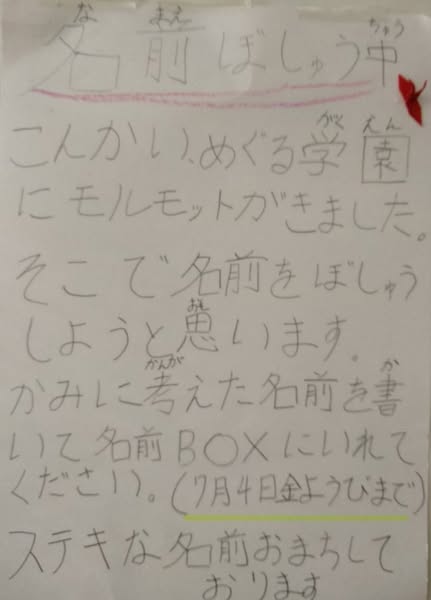 名前ぼしゅう中
こんかい、めぐる学園
にモルモットがきました。
そこで名前をぼしゅう
しようと思います。
かみに考えた名前を書
いて名前BOXにいれて
ください。(7月4日金ようびまで)
ステキな名前おまちして
おります